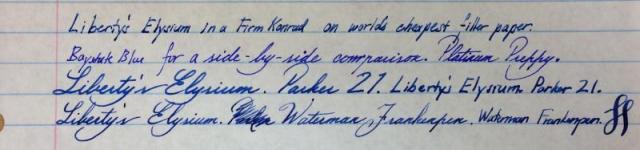 Liberty's Elysium in a Firm Konrad on world's cheapest filler paper.
Baystate Blue for a side-by-side comparison. Platinum Preppy.
Liberty's Elysium. Parker 21. Liberty's Elysium Parker 21.
Liberty's Elysium. Waterman Frankenpen. Waterman Frankenpen.